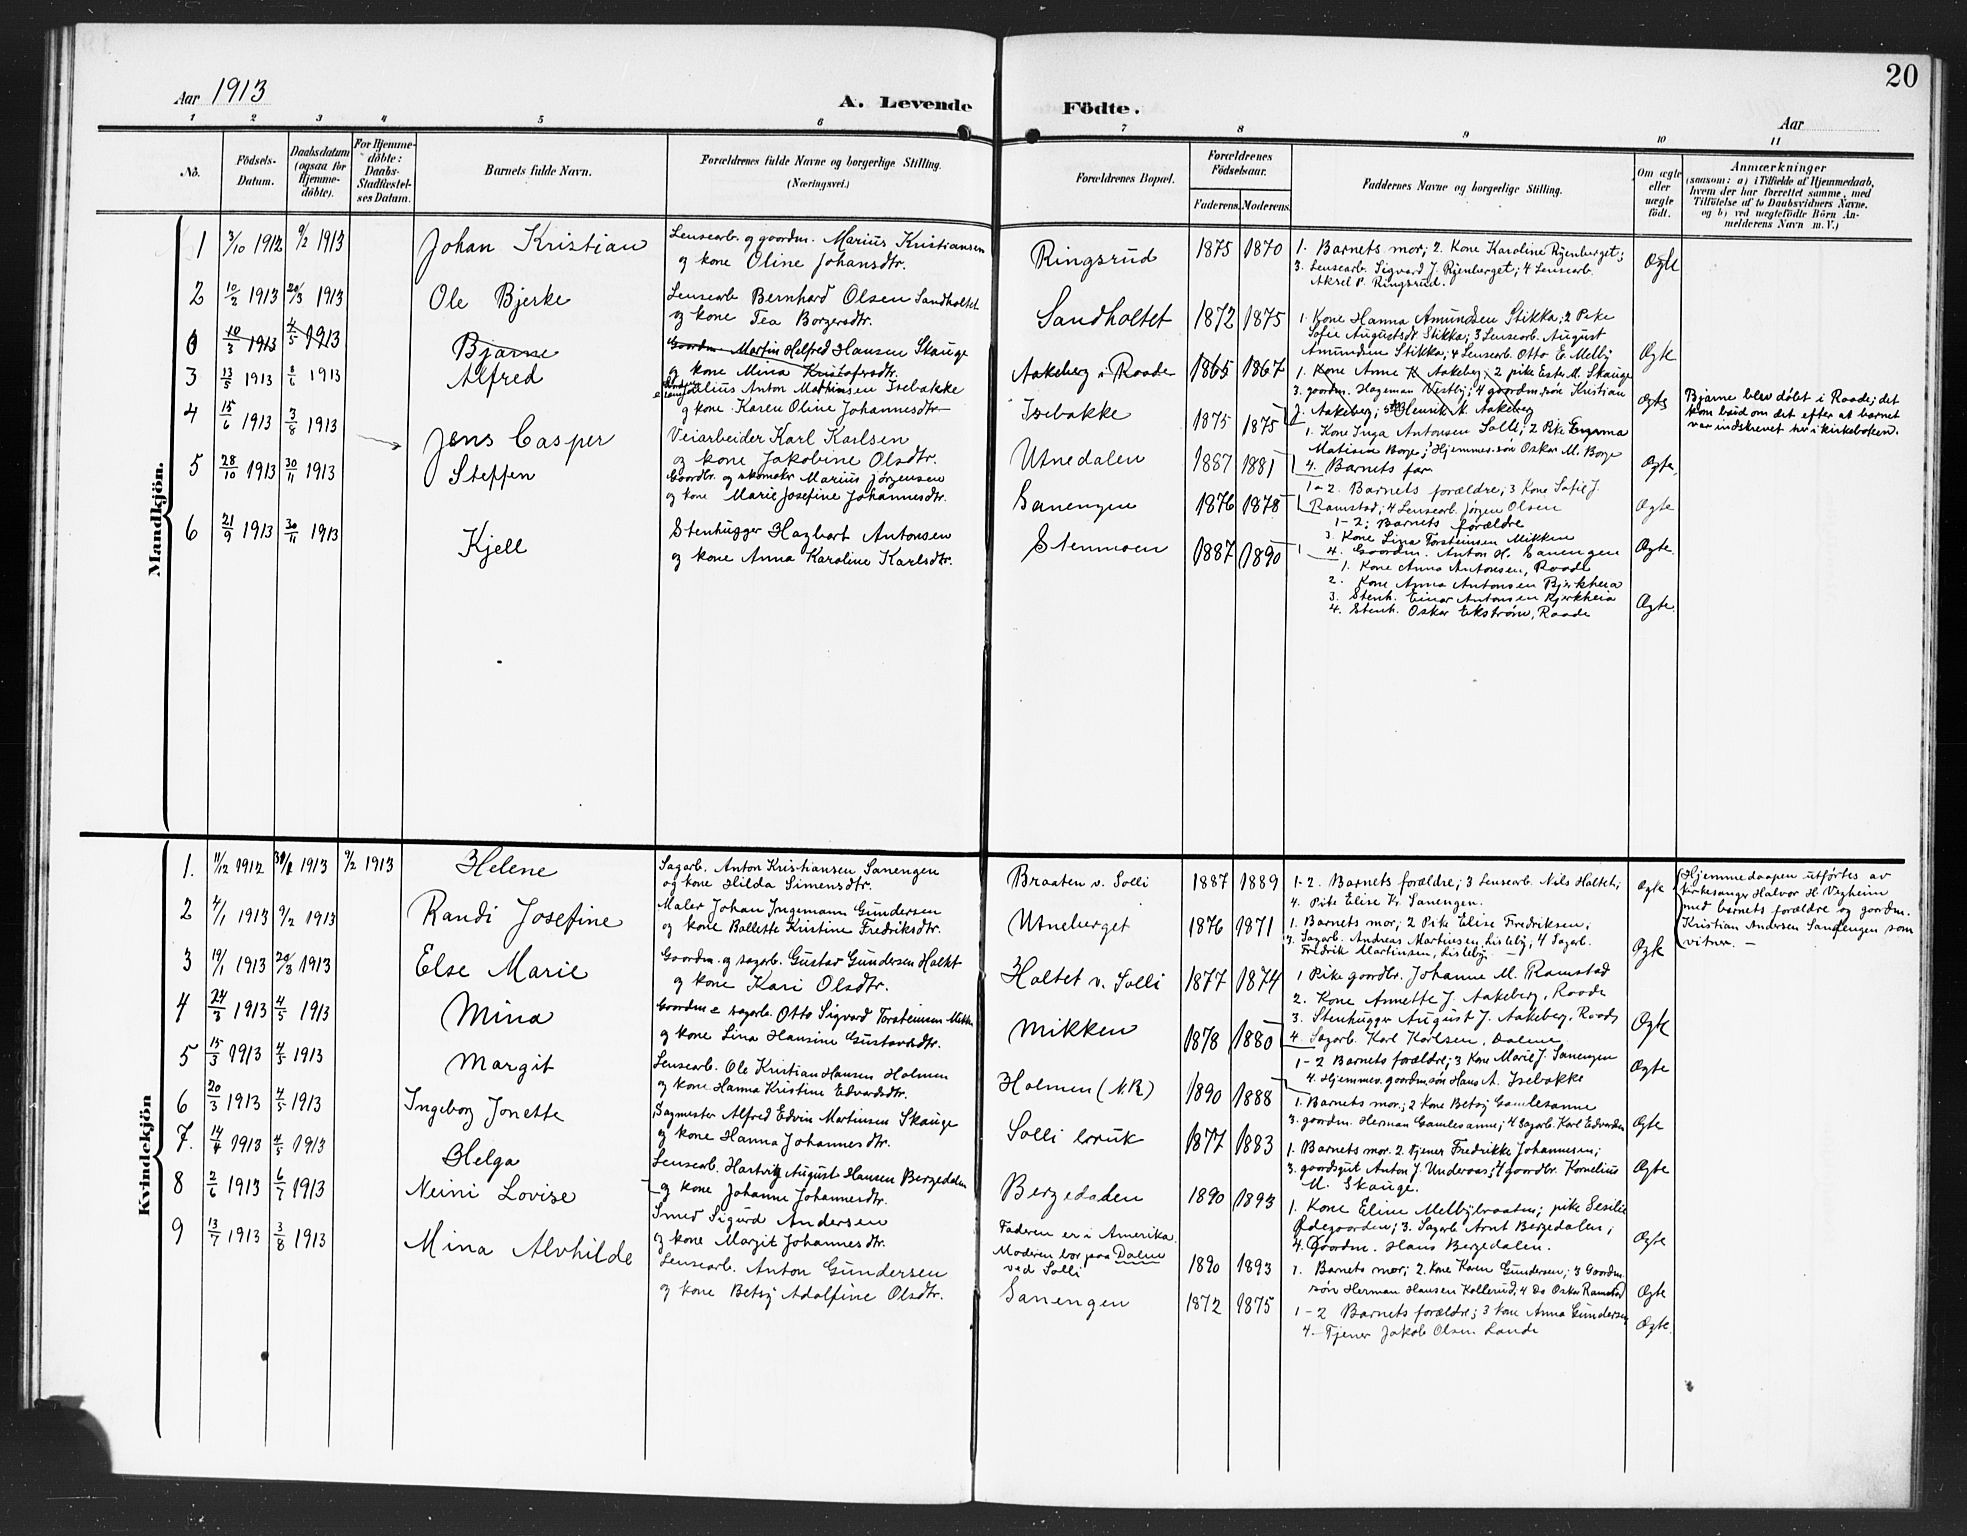 20
Aar 1913
A. Levende Födte.
Aar
1 2 3 4 5 6 7 8 9 10 11
No.
Födsels-
Datum.
Daabsdatum
(ogsaa for
Hjemme-
döbte).
For Hjemme-
döbte:
Daabs-
Stadfæstel-
ses Datum.
Barnets fulde Navn.
Forældrenes fulde Navne og borgerlige Stilling.
(Næringsvei.)
Forældrenes Bopæl.
Forældrenes
Födselsaar.
Faderens. Moderens.
Faddernes Navne og borgerlige Stilling.
Om ægte
eller
uægte
födt.
Anmærkninger
(saasom: a) i Tilfælde af Hjemmedaab,
hvem der har forrettet samme, med
Tilföielse af to Daabsvidners Navne.
og b) ved uægtefödte Börn An-
melderens Navn m. V.)
Mandkjön.
1 3/10 1912 9/2 1913 Johan Kristian
Lensearb. og goordm. Marius Kristiansen
og kone Oline Johansdtr.
Ringsrud 1875 1870
1. Barnets mor; 2. Kone Karoline Rjenberget;
3. Lensearb. Sigvard J. Rjenberget; 4 Lensearb.
Aksel P. Ringsrud.
Ægte
2 10/2 1913 20/3 1913 Ole Bjerke
Lensearb Bernhard Olsen Sandholtet
og kone Tea Borgersdtr.
Sandholtet 1872 1875
1. Kone Hanna Amundsen Stikka; 2 Pike
Sofie Augustsdtr Stikka; 3 Lensearb. August
Amundsen Stikka; 4 Lensearb. Otto E. Melby
Ægte
10/3 1913 4/5 1913 Bjarne
Goordm Martin Helfred Hansen Skauge
og kone Mina Kristofersdtr.
Aakeberg i Raade 1865 1867
1. Kone Anne K Aakeberg; 2 pike Ester M. Skauge
3. goordm. Hageman Vestby; 4 goordm.søn Kristian
J. Aakeberg; 5 Henrik M. Aakeberg
Ægte
Bjarne blev døbt i Raade; det
kom bud om det efter at barnet
var indskrevet her i kirkeboken.
3 13/5 1913 8/6 1913 Alfred
Julius Anton Mathisen Isebakke
og kone Karen Oline Johannesdtr
Isebakke 1875 1875
1. Kone Inga Antonsen Solli; 2 Pike
Matisen Borge; Hjemmev. søn Oskar M. Borge
4. Barnets far
Ægte
4 15/6 1913 3/8 1913 Jens Casper
Veiarbeider Karl Karlsen
og kone Jakobine Olsdtr.
Utnedalen 1887 1881
1-2. Barnets forældre; 3 Kone Sofie J.
Ramstad; 4 Lensearb. Jørgen Olsen
Ægte
5 28/10 1913 30/11 1913 Steffen
Goordbr. og skomakr Marius Jørgensen
og kone Marie Josefine Johannesdtr.
Sanengen 1876 1878
1-2; Barnets forældre
3. Kone Lina Torsteinsen Mikken
4. Goordm. Anton H. Sanengen
Ægte
6 21/9 1913 30/11 1913 Kjell
Stenhugger Hagbart Antonsen
og kone Anna Karoline Karlsdtr.
Stenmoen 1887 1890
1. Kone Anna Antonsen, Raade
2. Kone Anna Antonsen Bjerkheia
3. Stenh. Einar Antonsen Bjerkheia
4. Stenh. Oskar Ekstrøm, Raade
Ægte
Kvindekjön
1. 11/12 1912 1913 9/2 1913 Helene
Sagarb. Anton Kristiansen Sanengen
og kone Hilda Simensdtr.
Braaten v. Solli 1887 1889
1-2. Barnets forældre; 3 Lensearb. Nils Holtet;
4. Pike Elise Kr. Sanengen.
Ægte
Hjemmedaapen utførtes av
kirkesanger Halvor H. Vegheim
med barnets forældre og goordm.
Kristian Andersen Sanengen som
vitner. —
2 4/1 1913 9/2 1913 Randi Josefine
Maler Johan Ingemann Gundersen
og kone Ballette Kristine Fredriksdtr.
Utneberget 1876 1871
1. Barnets mor; 2 Pike Elise Fredriksen;
3. Sagarb. Andreas Martinsen, Lisleby; 4 Sagarb.
Fredrik Martinsen, Lisleby. —
Ægte
3 19/1 1913 20/3 1913 Else Marie
Goordm. og sagarb. Gustav Gundersen Holtet
og kone Kari Olsdtr.
Holtet v. Solli 1877 1874
1 Pike goordbr. Johanne M. Ramstad
2. Kone Annette J. Aakeberg, Raade
3. Stenhugger August J. Aakeberg, Raade
4. Sagarb. Karl Karlsen, Dalene
Ægte
4 24/3 1913 4/5 1913 Mina
Goordm & sagarb. Otto Sigvard Torsteinsen Mikken
og kone Lina Hansine Gustavsdtr.
Mikken 1878 1880
1-2 Barnets forældre; 3 Kone Marie J. Sanengen
4. Hjemmev. goordm.søn Hans A. Isebakke
Ægte
5 15/3 1913 4/5 1913 Margit
Lensearb. Ole Kristian Hansen Holmen
og kone Hanna Kristine Edvardsdtr.
Holmen (N.R) 1890 1888
1. Barnets mor; 2 Kone Betsy Gamlesanne
3. goordm. Herman Gamlesanne; 4 Sagarb. Karl Edvardsen
Ægte
6 20/3 1913 4/5 1913 Ingeborg Jonette
Sagmester Alfred Edvin Martinsen Skauge
og kone Hanna Johannesdtr.
Solli bruk 1877 1883
1. Barnets mor. 2. Tjener Fredrikke Johannesen;
3. goordsgut Anton J. Underaas; 4 goordbr. Kornelius
M. Skauge.
Ægte
7. 14/4 1913 4/5 1913 Helga
Lensearb. Hartvig August Hansen Bergedalen
og kone Johanne Johannesdtr.
Bergedalen 1890 1893
1. Kone Eline Melbybraaten; pike Sesilie
Ødegaarden; 3. Sagarb Arnt Bergedalen;
4. Goordm. Hans Bergedalen.
Ægte
8 2/6 1913 6/7 1913 Neini Lovise
Smed Sigurd Andersen
og kone Margit Johannesdtr.
Faderen er i Amerika.
Moderen bor paa Dalene
ved Solli
1890 1893
1. Barnets mor; 2. Kone Karen Gundersen; 3 Goordm.
søn Herman Hansen Kollerud; 4 Do Oskar Ramstad
Ægte
9 13/7 1913 3/8 1913 Mina Alvhilde
Lensearb. Anton Gundersen
og kone Betsy Adolfine Olsdtr.
Sanengen 1872 1875
1-2 Barnets forældre; 3 kone Anna Gundersen
4. Tjener Jakob Olsen Lande
Ægte.